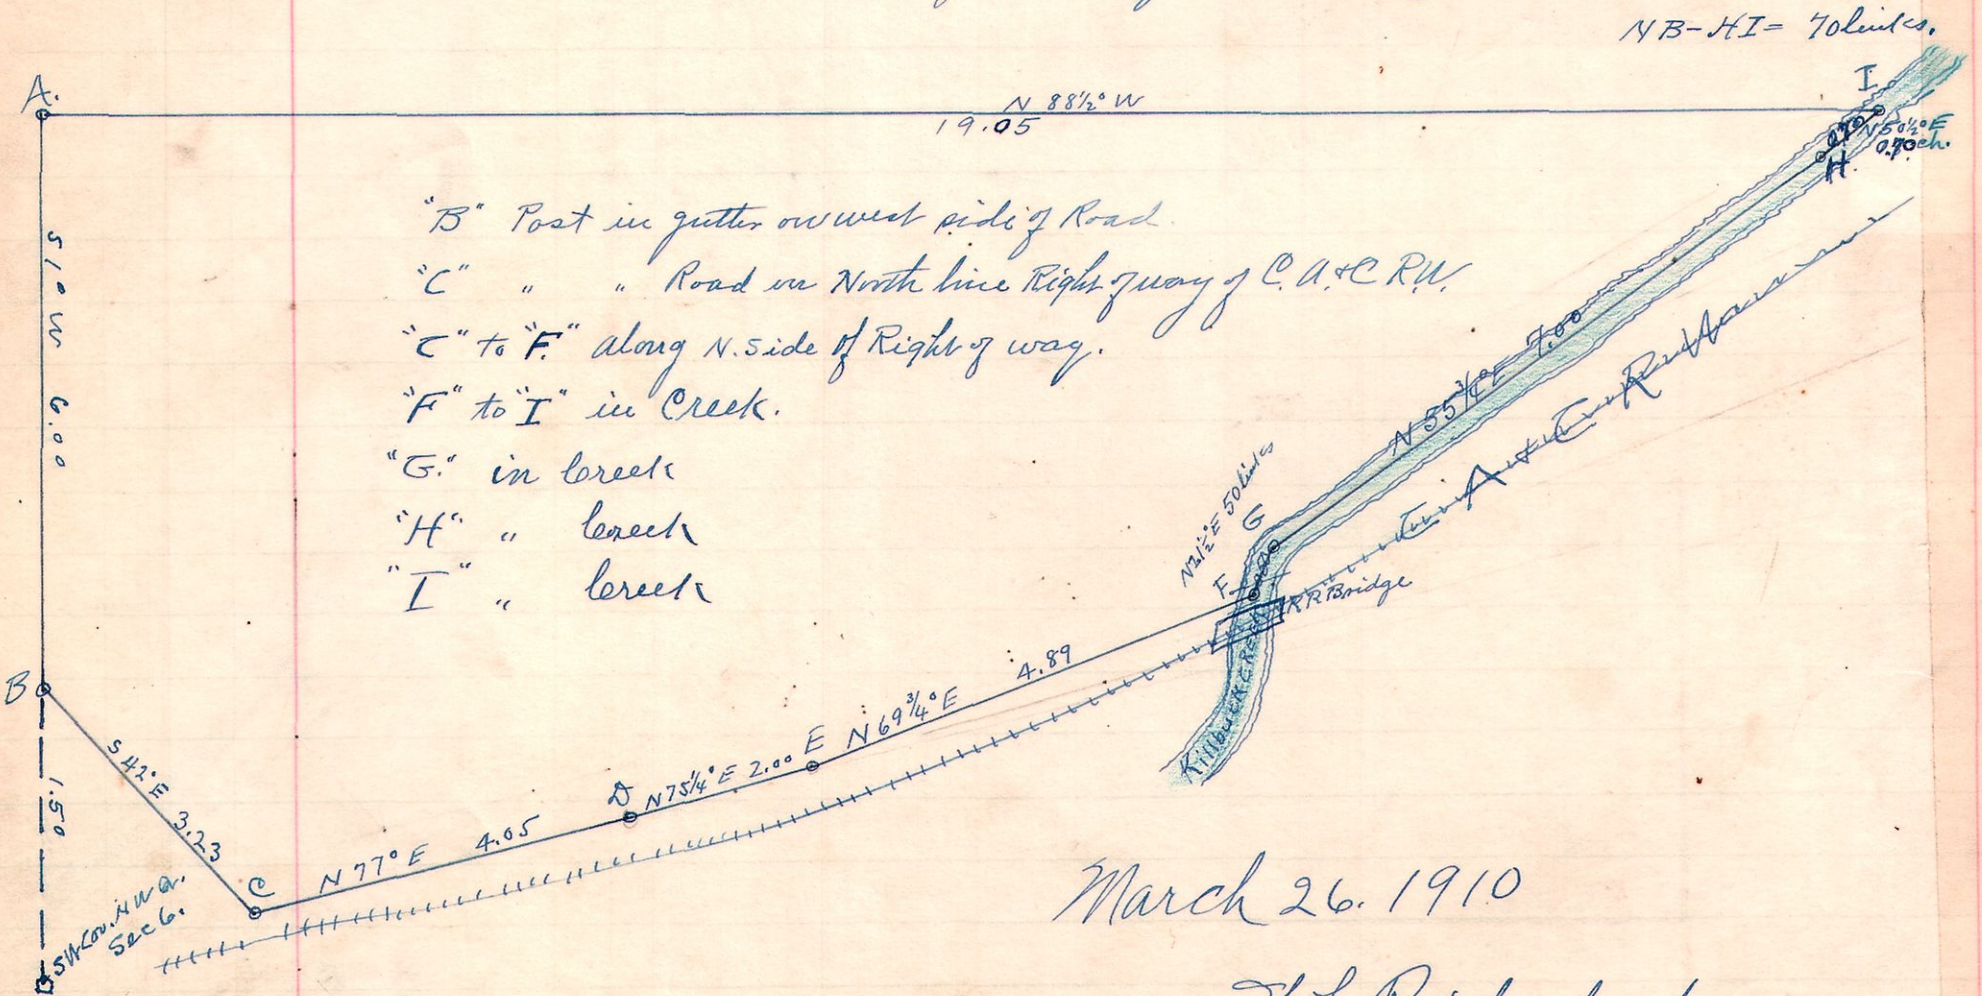 NB-HI= 70 links.
A.
I
N 88½° W
19.05
0.70
N50½°E
0.70 ch.
H
"B" Post in gutter on west side of Road
"C" " " Road on North line Right of way of C.A.&C R.W.
"C" to "F." along N. Side of Right of way.
"F" to "I" in Creek.
"G." in Creek
"H" " Creek
"I" " Creek
S 1° W 6.00
N 55¾° E 7.00
C A & C R W
N21½°E 50 links
G
F
RR Bridge
Killbuck CREEK
B
S 42° E 3.23
1.50
C
N 77° E 4.05
D
N75¼°E 2.00
E
N 69¾° E 4.89
SW Cor. N W Q.
Sec 6.
March 26. 1910